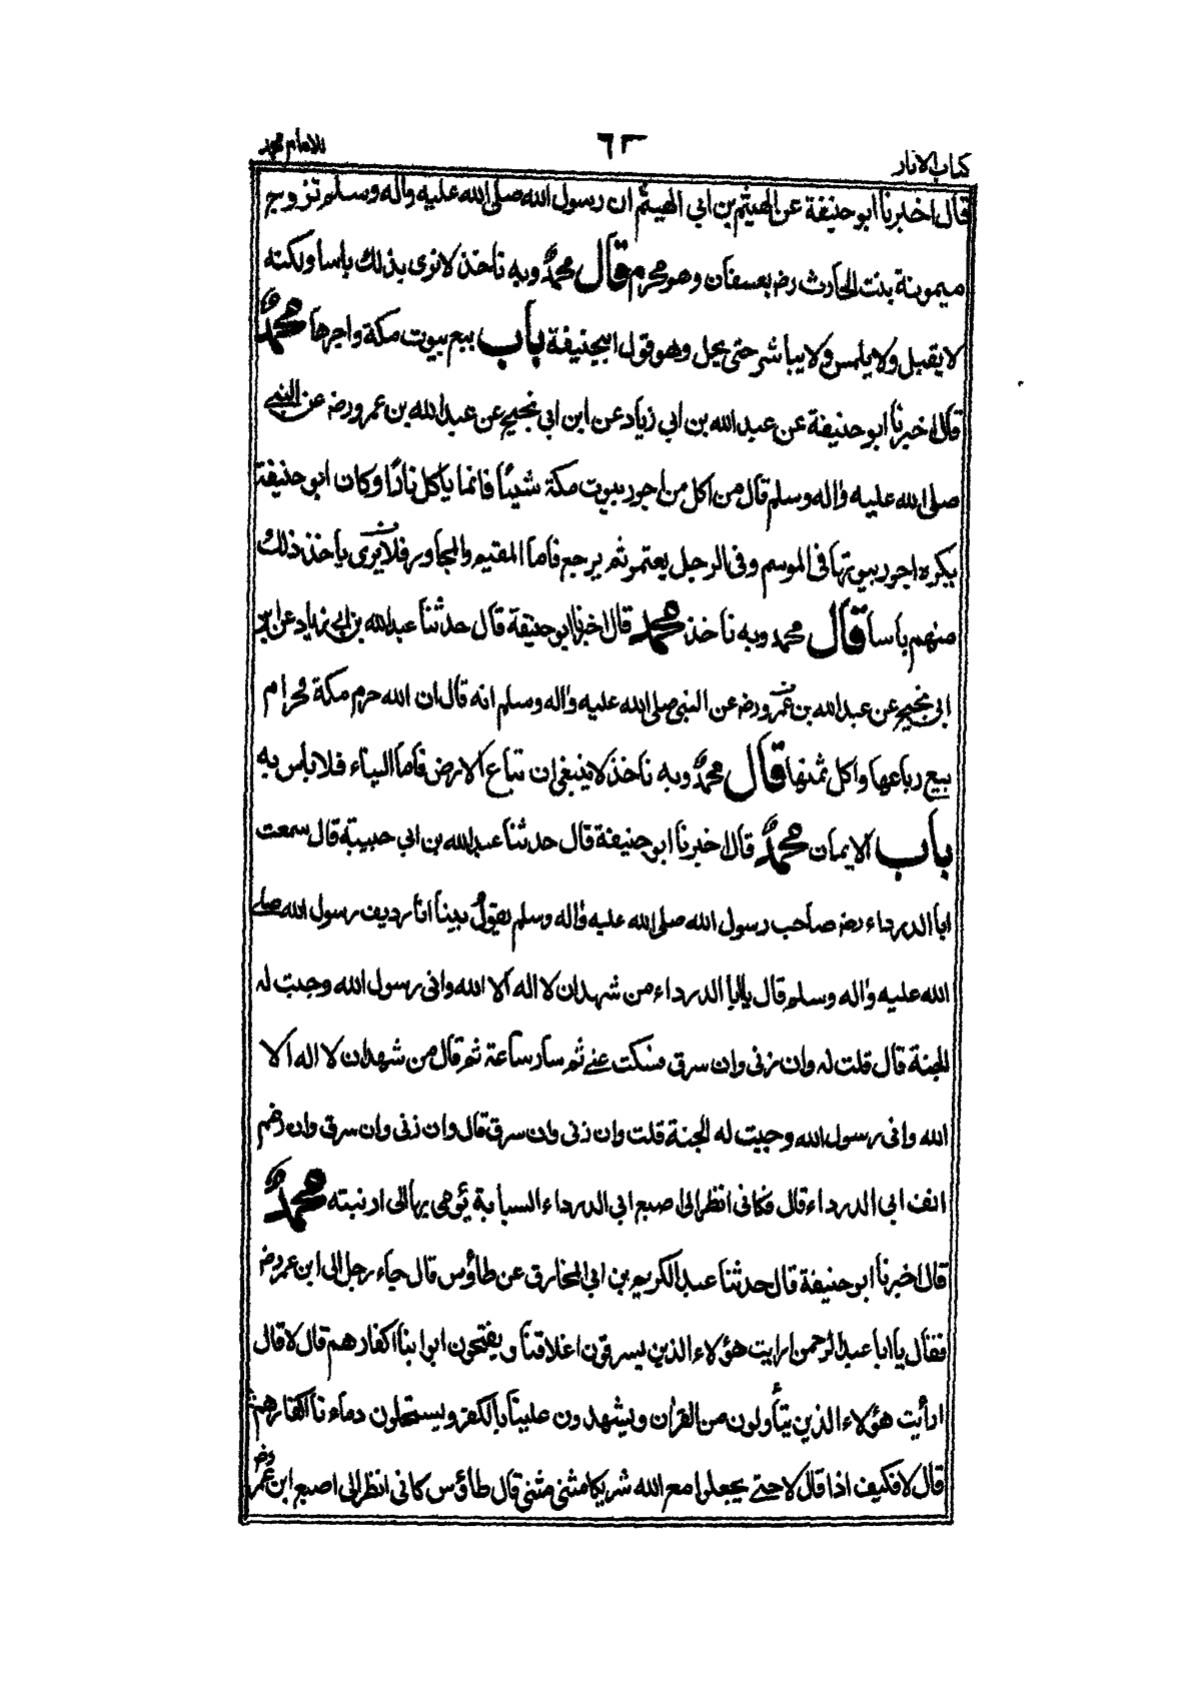 كتاب الاثار ٦٣ للامام محمد
قال اخبرنا ابو حنيفة عن الهيثم بن ابي الهيثم ان رسول الله صلى الله عليه واله وسلم تزوج
ميمونة بنت الحارث رضـ بعسفان وهو محرم قال محمدؒ وبه ناخذ لا نرى بذلك باسا ولكنه
لا يقبل ولا يلمس ولا يباشر حتى يحل وهو قول ابيحنيفة باب بيع بيوت مكة واجرها محمدؒ
قال اخبرنا ابو حنيفة عن عبد الله بن ابي زياد عن ابن ابي نجيح عن عبد الله بن عمرو رضـ عن النبي
صلى الله عليه واله وسلم قال من اكل من اجور بيوت مكة شيئا فانما ياكل نارًا وكان ابو حنيفة
يكره اجور بيوتها في الموسم وفي الرجل يعتمر ثم يرجع فاما المقيم والمجاور فلا يرى باخذ ذلك
منهم باسا قال محمد وبه ناخذ محمد قال اخبرنا ابو حنيفة قال حدثنا عبد الله بن ابي زياد عن ابن
ابي نجيح عن عبد الله بن عمرو رضـ عن النبي صلى الله عليه واله وسلم انه قال ان الله حرم مكة فحرام
بيع رباعها واكل ثمنها قال محمدؒ وبه ناخذ لا ينبغي ان تباع الارض فاما البناء فلا باس به
باب الايمان محمدؒ قال اخبرنا ابو حنيفة قال حدثنا عبد الله بن ابي حبيبة قال سمعت
ابا الدرداء رضـ صاحب رسول الله صلى الله عليه واله وسلم يقول بينا انا رديف رسول الله صلى
الله عليه واله وسلم قال يا ابا الدرداء من شهد ان لا اله الا الله واني رسول الله وجبت له
الجنة قال قلت له وان زنى وان سرق فسكت عني ثم سار ساعة ثم قال من شهد ان لا اله الا
الله واني رسول الله وجبت له الجنة قلت وان زنى وان سرق قال وان زنى وان سرق وان رغم
انف ابي الدرداء قال فكاني انظر الى اصبع ابي الدرداء السبابة يؤمي بها الى ارنبته محمدؒ
قال اخبرنا ابو حنيفة قال حدثنا عبد الكريم بن ابي المخارق عن طاؤس قال جاء رجل الى ابن عمر رضـ
فقال يا ابا عبد الرحمن ارايت هؤلاء الذين يسرقون اغلاقنا ويفتحون ابوابنا اكفار هم قال لا قال
ارأيت هؤلاء الذين يتأولون من القران ويشهدون علينا بالكفر ويستحلون دماءنا اكفار هم
قال لا فكيف اذا قال لا حتى يجعلوا مع الله شريكا مثنى مثنى قال طاؤس كاني انظر الى اصبع ابن عمر رضـ